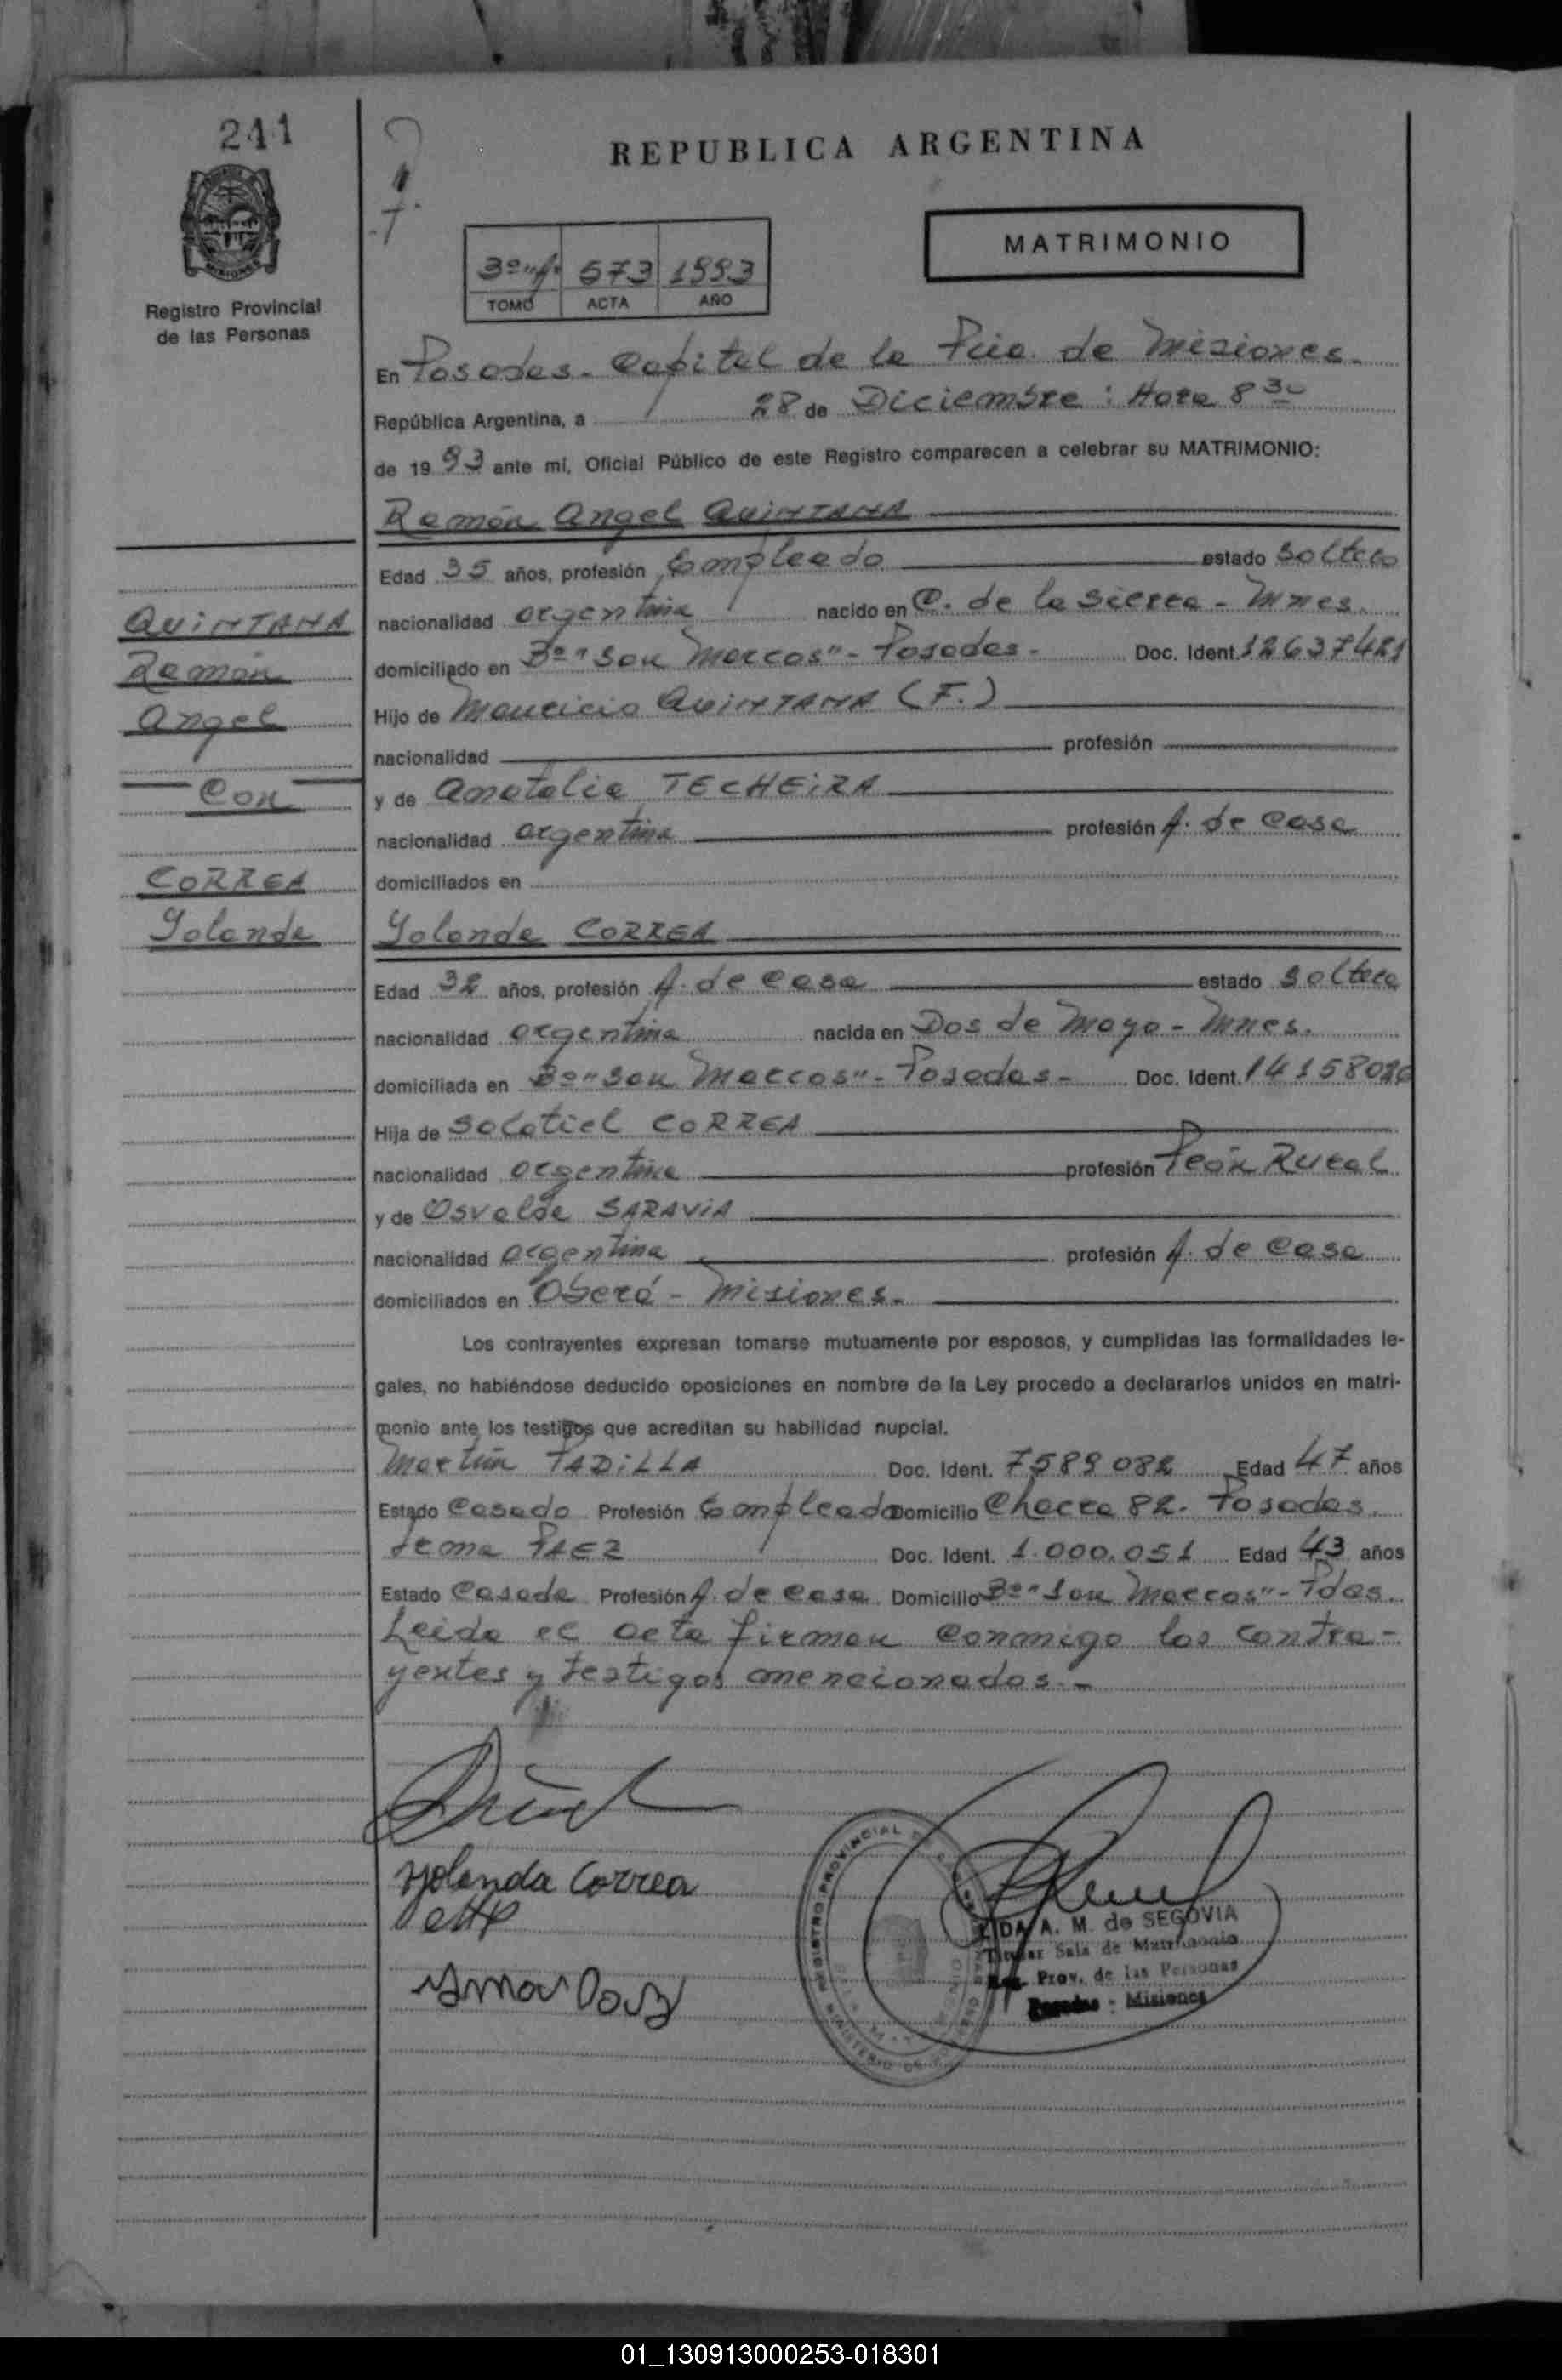 241
REPUBLICA ARGENTINA
MATRIMONIO
3º "A" 573 1993
TOMO ACTA AÑO
Registro Provincial
de las Personas
En Posadas - Capital de la Pcia. de Misiones.
República Argentina, a 28 de Diciembre : Hora 8 30
de 1993 ante mi, Oficial Público de este Registro comparecen a celebrar su MATRIMONIO:
Ramón Angel QUINTANA
Edad 35 años, profesión Empleado estado soltero
QUINTANA
Ramón
Angel
Con
CORREA
Yolanda
nacionalidad argentina nacido en C. de la Sierra - Mnes.
domiciliado en Bº "San Marcos" - Posadas - Doc. Ident. 12637421
Hijo de Mauricio QUINTANA (F.)
nacionalidad profesión
y de Anatalia TECHEIRA
nacionalidad argentina profesión A. de Casa
domiciliados en
Yolanda CORREA
Edad 32 años, profesión A. de casa estado soltera
nacionalidad argentina nacida en Dos de Mayo - Mnes.
domiciliada en Bº "San Marcos" - Posadas - Doc. Ident.
Hija de Salatiel CORREA
nacionalidad argentina profesión Peón Rural
y de Osvalda SARAVIA
nacionalidad argentina profesión A. de Casa
domiciliados en Oberá - Misiones.
Los contrayentes expresan tomarse mutuamente por esposos, y cumplidas las formalidades le-
gales, no habiéndose deducido oposiciones en nombre de la Ley procedo a declararlos unidos en matri-
monio ante los testigos que acreditan su habilidad nupcial.
Martín PADILLA Doc. Ident. 7589082 Edad 47 años
Estado Casado Profesión Empleado Domicilio Chacra 82 - Posadas.
Irma PAEZ Doc. Ident. 1.000.051 Edad 43 años
Estado Casada Profesión A. de casa Domicilio Bº "San Marcos" - Pdas.
Leida el acta firman conmigo los contra-
yentes y testigos mencionados. -
Yolanda Correa
A. M. de SEGOVIA
Titular Sala de Matrimonio
Reg. Prov. de las Personas
Posadas - Misiones
01_130913000253-018301